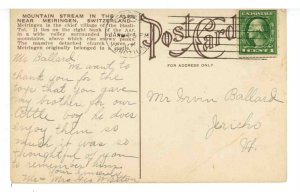 MOUNTAIN STREAM IN THE ALPS
NEAR MEIRINGEN, SWITZERLAND.
Meiringen is the chief village of the Hasli-
Tal. It lies on the right bank of the Aar,
in a wide valley surrounded by
mountains, above which rise snowy peaks.
The massive detached church tower of
Meiringen originally belonged to
Post Card
FOR ADDRESS ONLY
Mr Ballard
We want to
thank you for the
toys that you gave
my brother for our
little boy he does
enjoy them so
much it was so
thoughtful of you
remembers him
Your friends
Mr & Mrs Geo
Mr Irvin Ballard
Jericho
Vt.